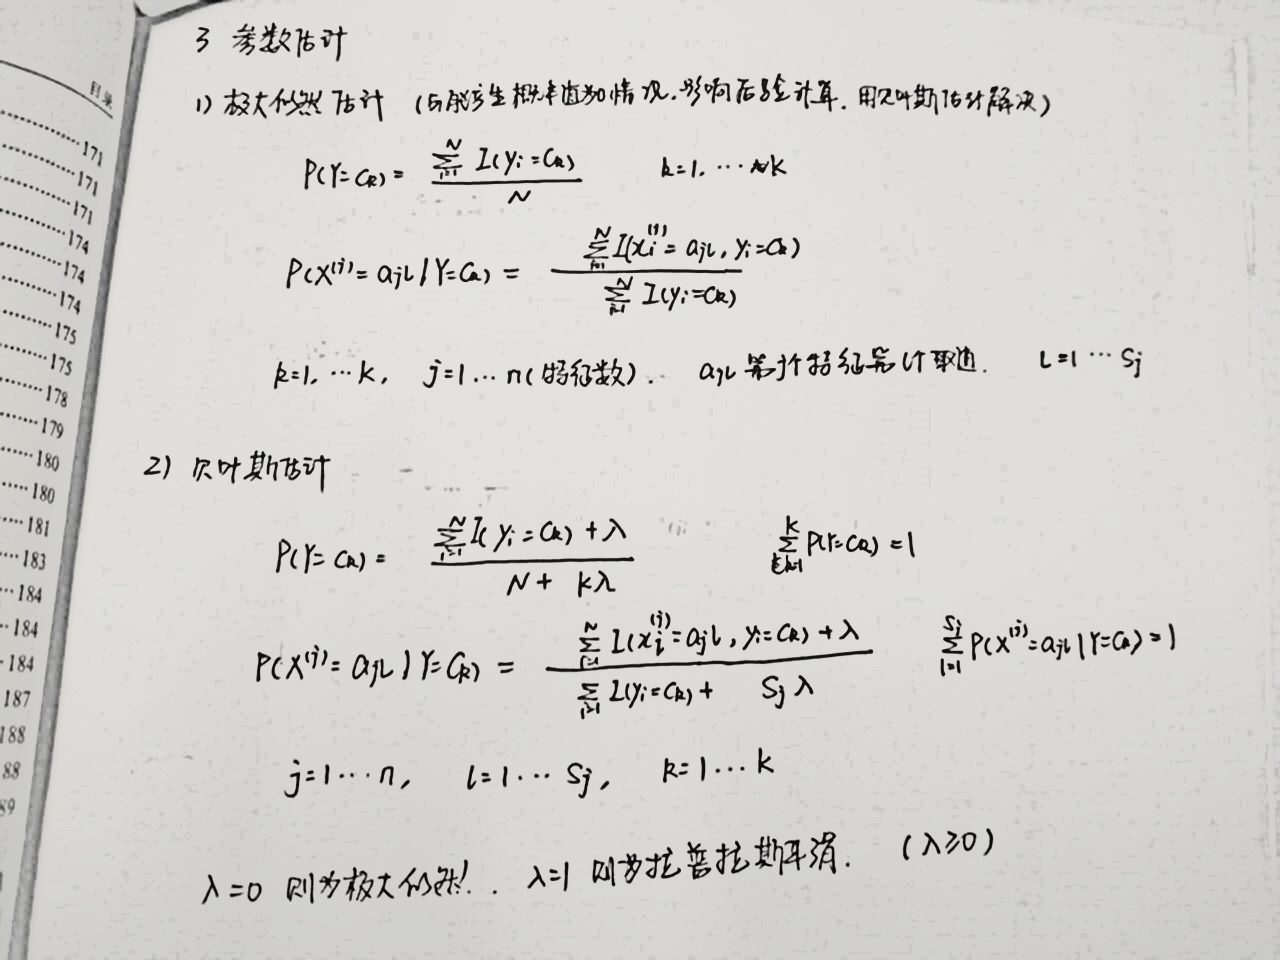 目录
171
171
171
174
174
174
175
175
178
179
180
180
181
183
184
184
184
187
188
88
89
3 参数估计
1) 极大似然估计 (可能产生概率值为0情况,影响后验计算,用贝叶斯估计解决)
P(Y=Ck) = ∑_{i=1}^{N} I(yi=Ck) / N  k=1, ⋯ K
P(X^(j)=ajl|Y=Ck) = ∑_{i=1}^{N} I(xi^(j)=ajl, yi=Ck) / ∑_{i=1}^{N} I(yi=Ck)
k=1, ⋯ k, j=1 ⋯ n(特征数). ajl 第j个特征第l个取值. l=1 ⋯ Sj
2) 贝叶斯估计
P(Y=Ck) = ∑_{i=1}^{N} I(yi=Ck)+λ / N+ Kλ  ∑_{k=1}^{K} P(Y=Ck)=1
P(X^(j)=ajl|Y=Ck) = ∑_{i=1}^{N} I(xi^(j)=ajl, yi=Ck)+λ / ∑_{i=1} I(yi=Ck)+ Sjλ  ∑_{l=1}^{Sj} P(X^(j)=ajl|Y=Ck)=1
j=1 ⋯ n, l=1 ⋯ Sj, k=1 ⋯ k
λ=0 则为极大似然. λ=1 则为拉普拉斯平滑. (λ≥0)